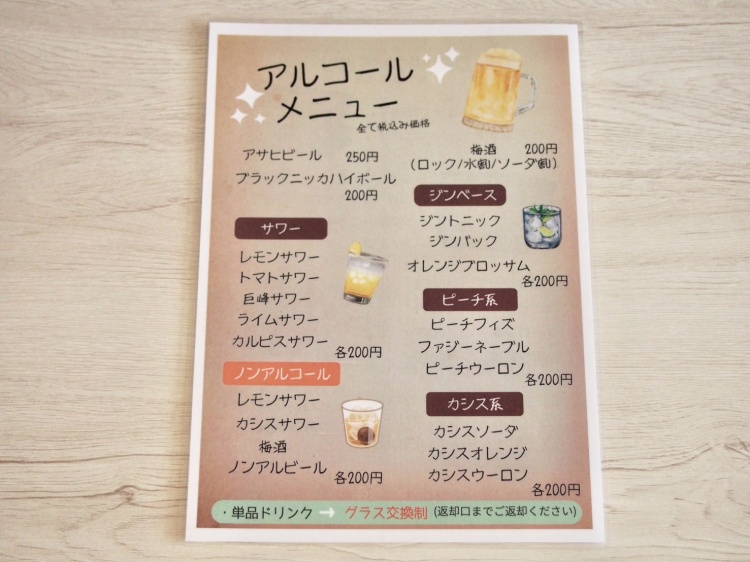 アルコール
メニュー
全て税込み価格
アサヒビール 250円
ブラックニッカハイボール
200円
サワー
レモンサワー
トマトサワー
巨峰サワー
ライムサワー
カルピスサワー
各200円
ノンアルコール
レモンサワー
カシスサワー
梅酒
ノンアルビール
各200円
梅酒 200円
(ロック/水割/ソーダ割)
ジンベース
ジントニック
ジンバック
オレンジブロッサム
各200円
ピーチ系
ピーチフィズ
ファジーネーブル
ピーチウーロン
各200円
カシス系
カシスソーダ
カシスオレンジ
カシスウーロン
各200円
・単品ドリンク → グラス交換制 (返却口までご返却ください)